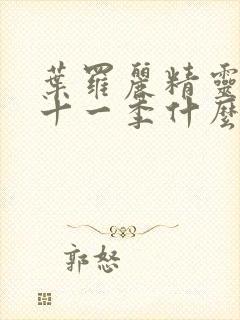 葉羅麗精靈
十一季什麼
郭怒